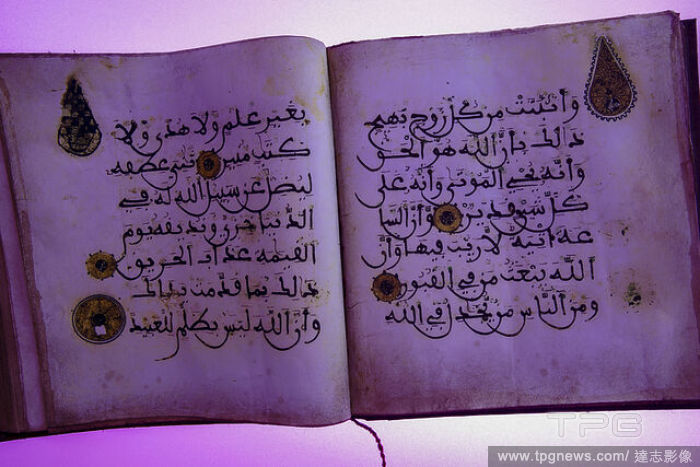 وأنبتت من كل زوج بهيج
ذلك بأن الله هو الحق
وأنه يحي الموتى وأنه على
كل شيء قدير وأن السا
عة اتية لا ريب فيها وأن
الله يبعث من في القبور
ومن الناس من يجدل في الله
بغير علم ولا هدى ولا
كتب منير ثني عطفه
ليضل عن سبيل الله له في
الدنيا خزي ونذيقه يوم
القيمة عذاب الحريق
ذلك بما قدمت يداك
وأن الله ليس بظلم للعبيد
TPG
www.tpgnews.com / 達志影像